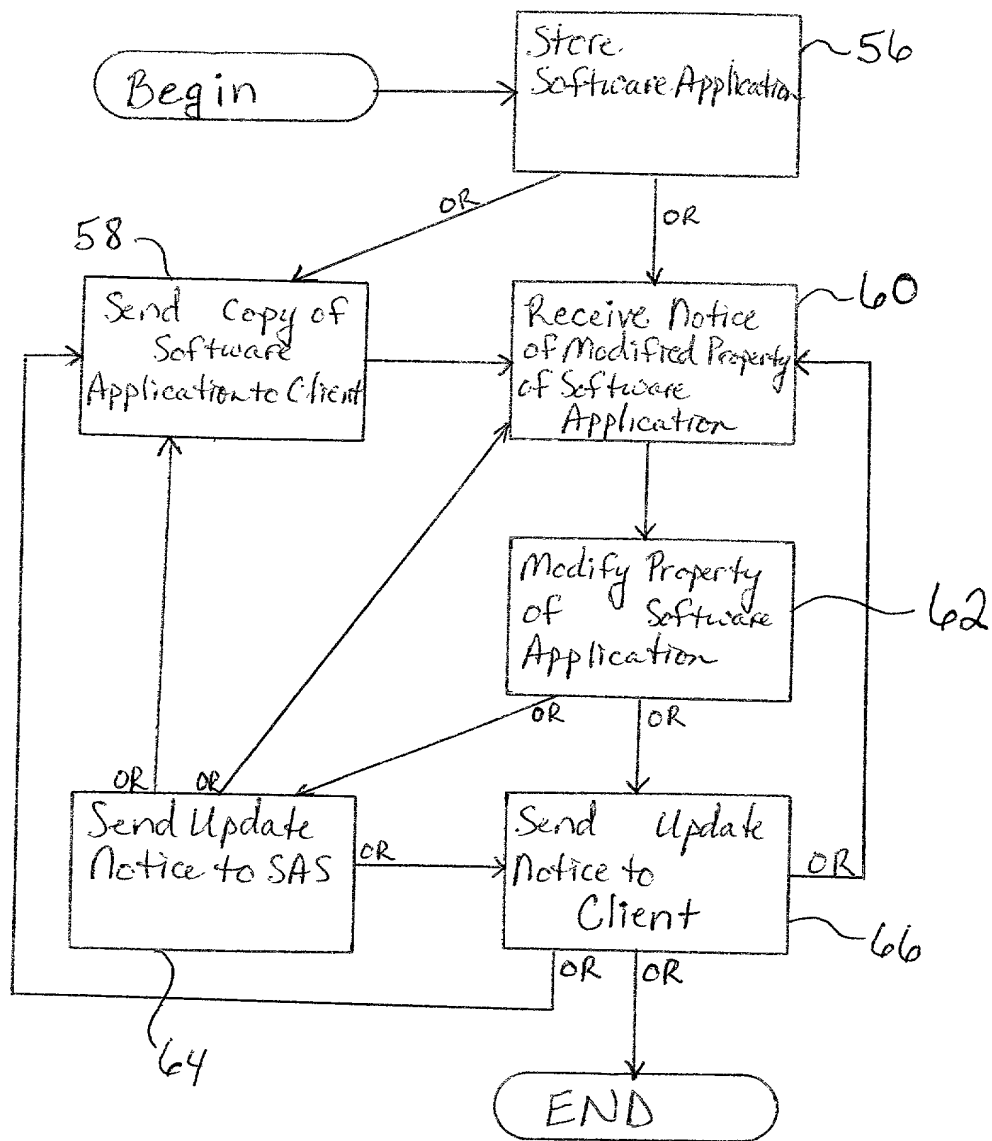 Begin
Store
Software Application
56
OR
OR
58
Send Copy of
Software
Application to Client
Receive Notice
of Modified Property
of Software
Application
60
Modify Property
of Software
Application
62
OR
OR
OR
OR
Send Update
Notice to SAS
OR
Send Update
Notice to
Client
OR
66
OR
OR
64
END